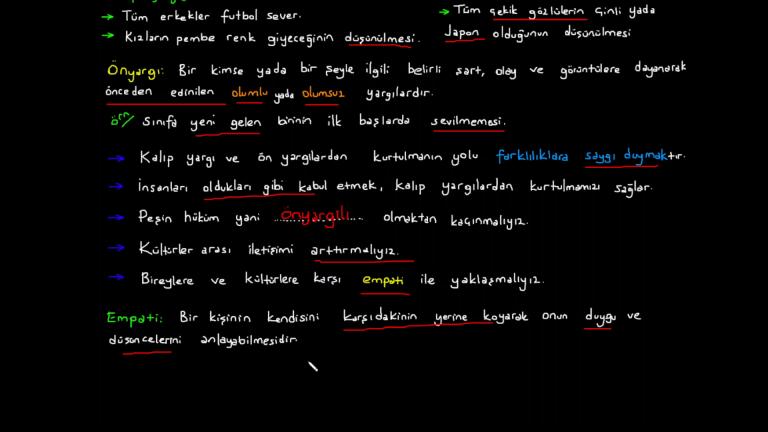 → Tüm erkekler futbol sever.
→ Kızların pembe renk giyeceğinin düşünülmesi.
→ Tüm çekik gözlülerin Çinli yada
Japon olduğunun düşünülmesi
Önyargı: Bir kimse yada bir şeyle ilgili belirli şart, olay ve görüntülere dayanarak
önceden edinilen olumlu yada olumsuz yargılardır.
örn/ Sınıfa yeni gelen birinin ilk başlarda sevilmemesi.
→ Kalıp yargı ve ön yargılardan kurtulmanın yolu farklılıklara saygı duymaktır.
→ İnsanları oldukları gibi kabul etmek, kalıp yargılardan kurtulmamızı sağlar.
→ Peşin hüküm yani ...önyargılı... olmaktan kaçınmalıyız.
→ Kültürler arası iletişimi arttırmalıyız.
→ Bireylere ve kültürlere karşı empati ile yaklaşmalıyız.
Empati: Bir kişinin kendisini karşıdakinin yerine koyarak onun duygu ve
düşüncelerini anlayabilmesidir.